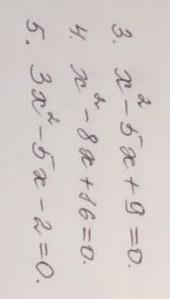 3. x²-5x+9=0.
4. x²-8x+16=0.
5. 3x²-5x-2=0.